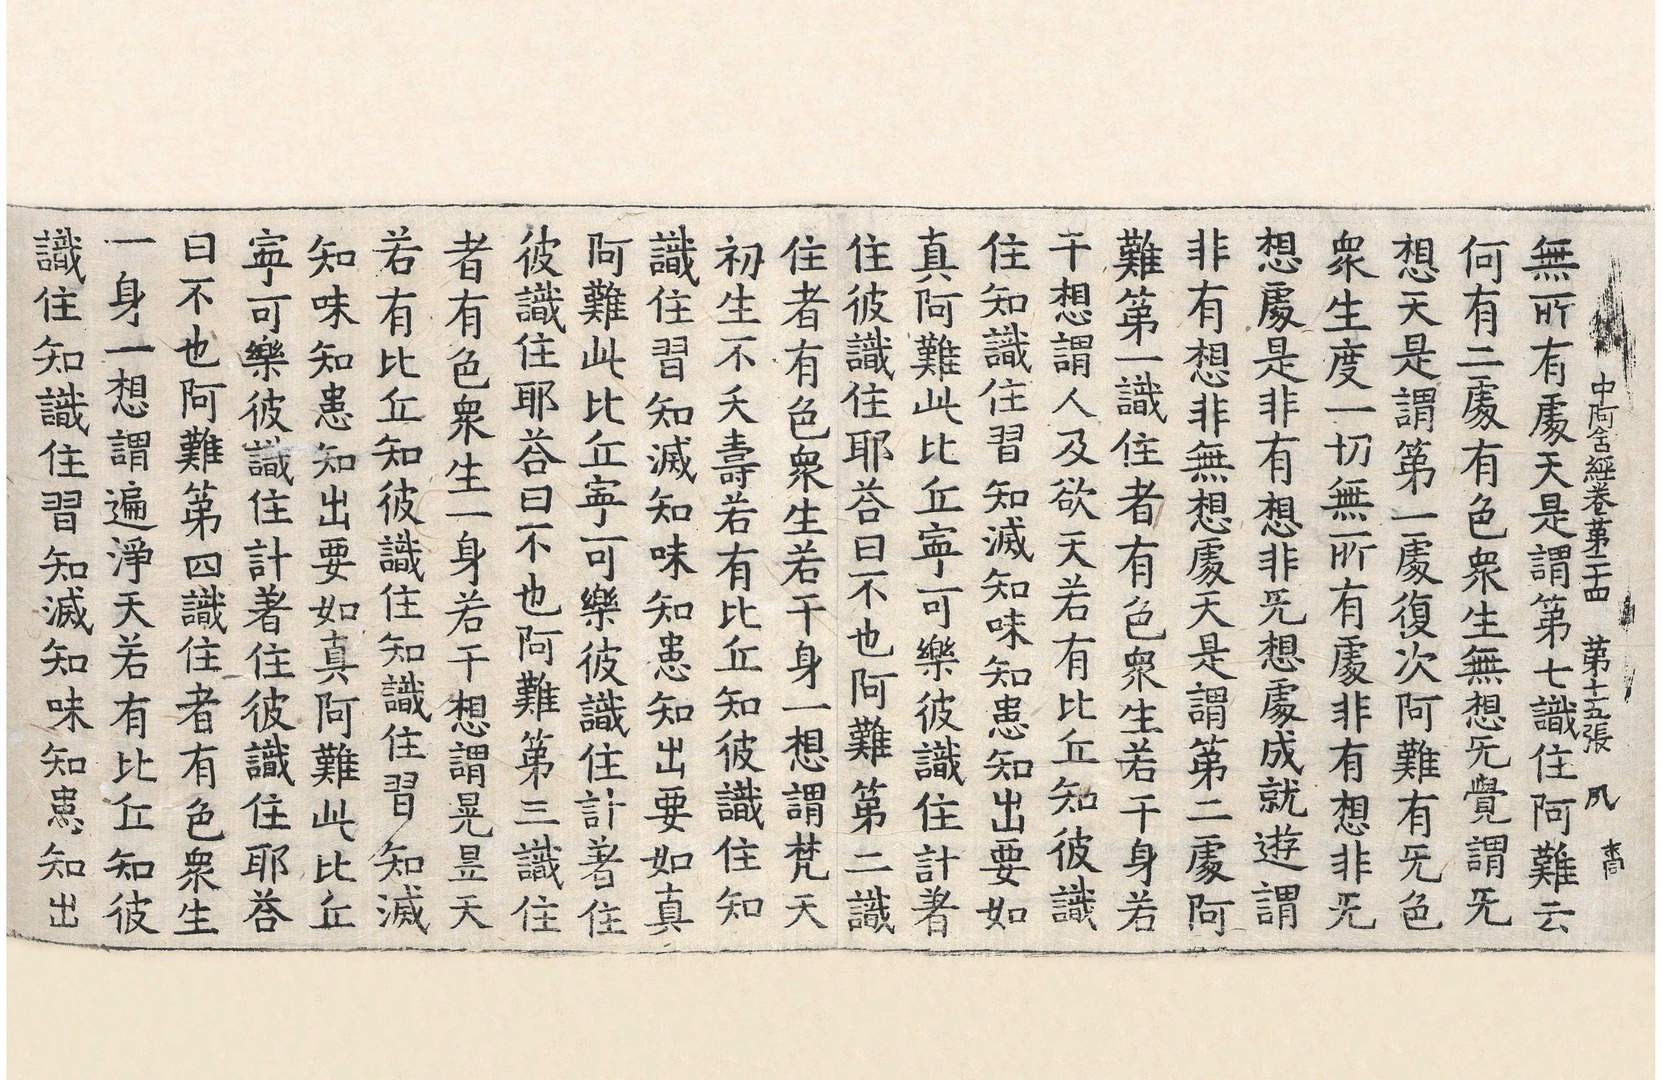 中阿含經卷第二十四 第十五張 夙
無所有處天是謂第七識住阿難云
何有二處有色衆生無想无覺謂无
想天是謂第一處復次阿難有无色
衆生度一切無所有處非有想非无
想處是非有想非无想處成就遊謂
非有想非無想處天是謂第二處阿
難第一識住者有色衆生若干身若
干想謂人及欲天若有比丘知彼識
住知識住習知滅知味知患知出要如
真阿難此比丘寧可樂彼識住計著
住彼識住耶荅曰不也阿難第二識
住者有色衆生若干身一想謂梵天
初生不夭壽若有比丘知彼識住知
識住習知滅知味知患知出要如真
阿難此比丘寧可樂彼識住計著住
彼識住耶荅曰不也阿難第三識住
者有色衆生一身若干想謂晃昱天
若有比丘知彼識住知識住習知滅
知味知患知出要如真阿難此比丘
寧可樂彼識住計著住彼識住耶荅
曰不也阿難第四識住者有色衆生
一身一想謂遍淨天若有比丘知彼
識住知識住習知滅知味知患知出